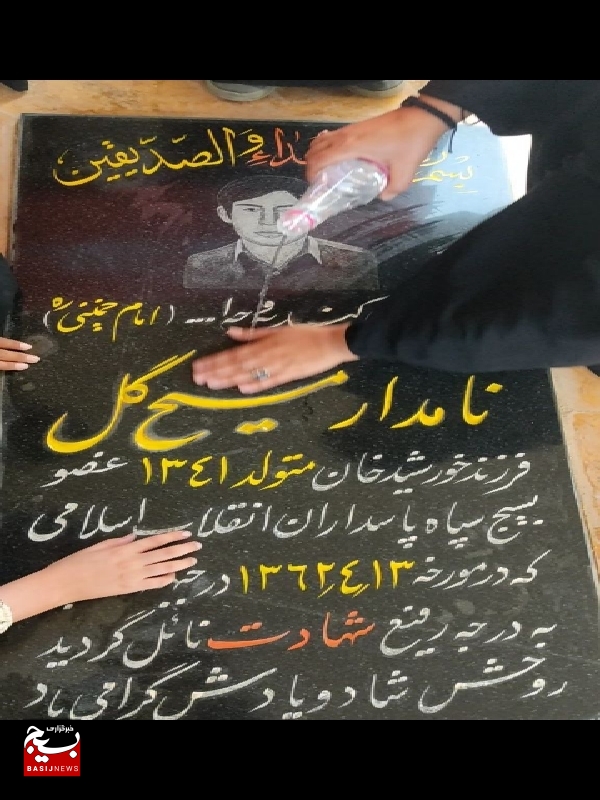 وَالصّدّیقین
(امام خمینی ره)
نامدار مسیح گل
فرزند خورشید خان متولد ۱۳٤۱ عضو
بسیج سپاه پاسداران انقلاب اسلامی
که در مورخه ۱۳٦۲٫٤٫۱۳ در
به درجه رفیع شهادت نائل گردید
روحش شاد و یادش گرامی باد
خبرگزاری
بسیج
BASIJNEWS